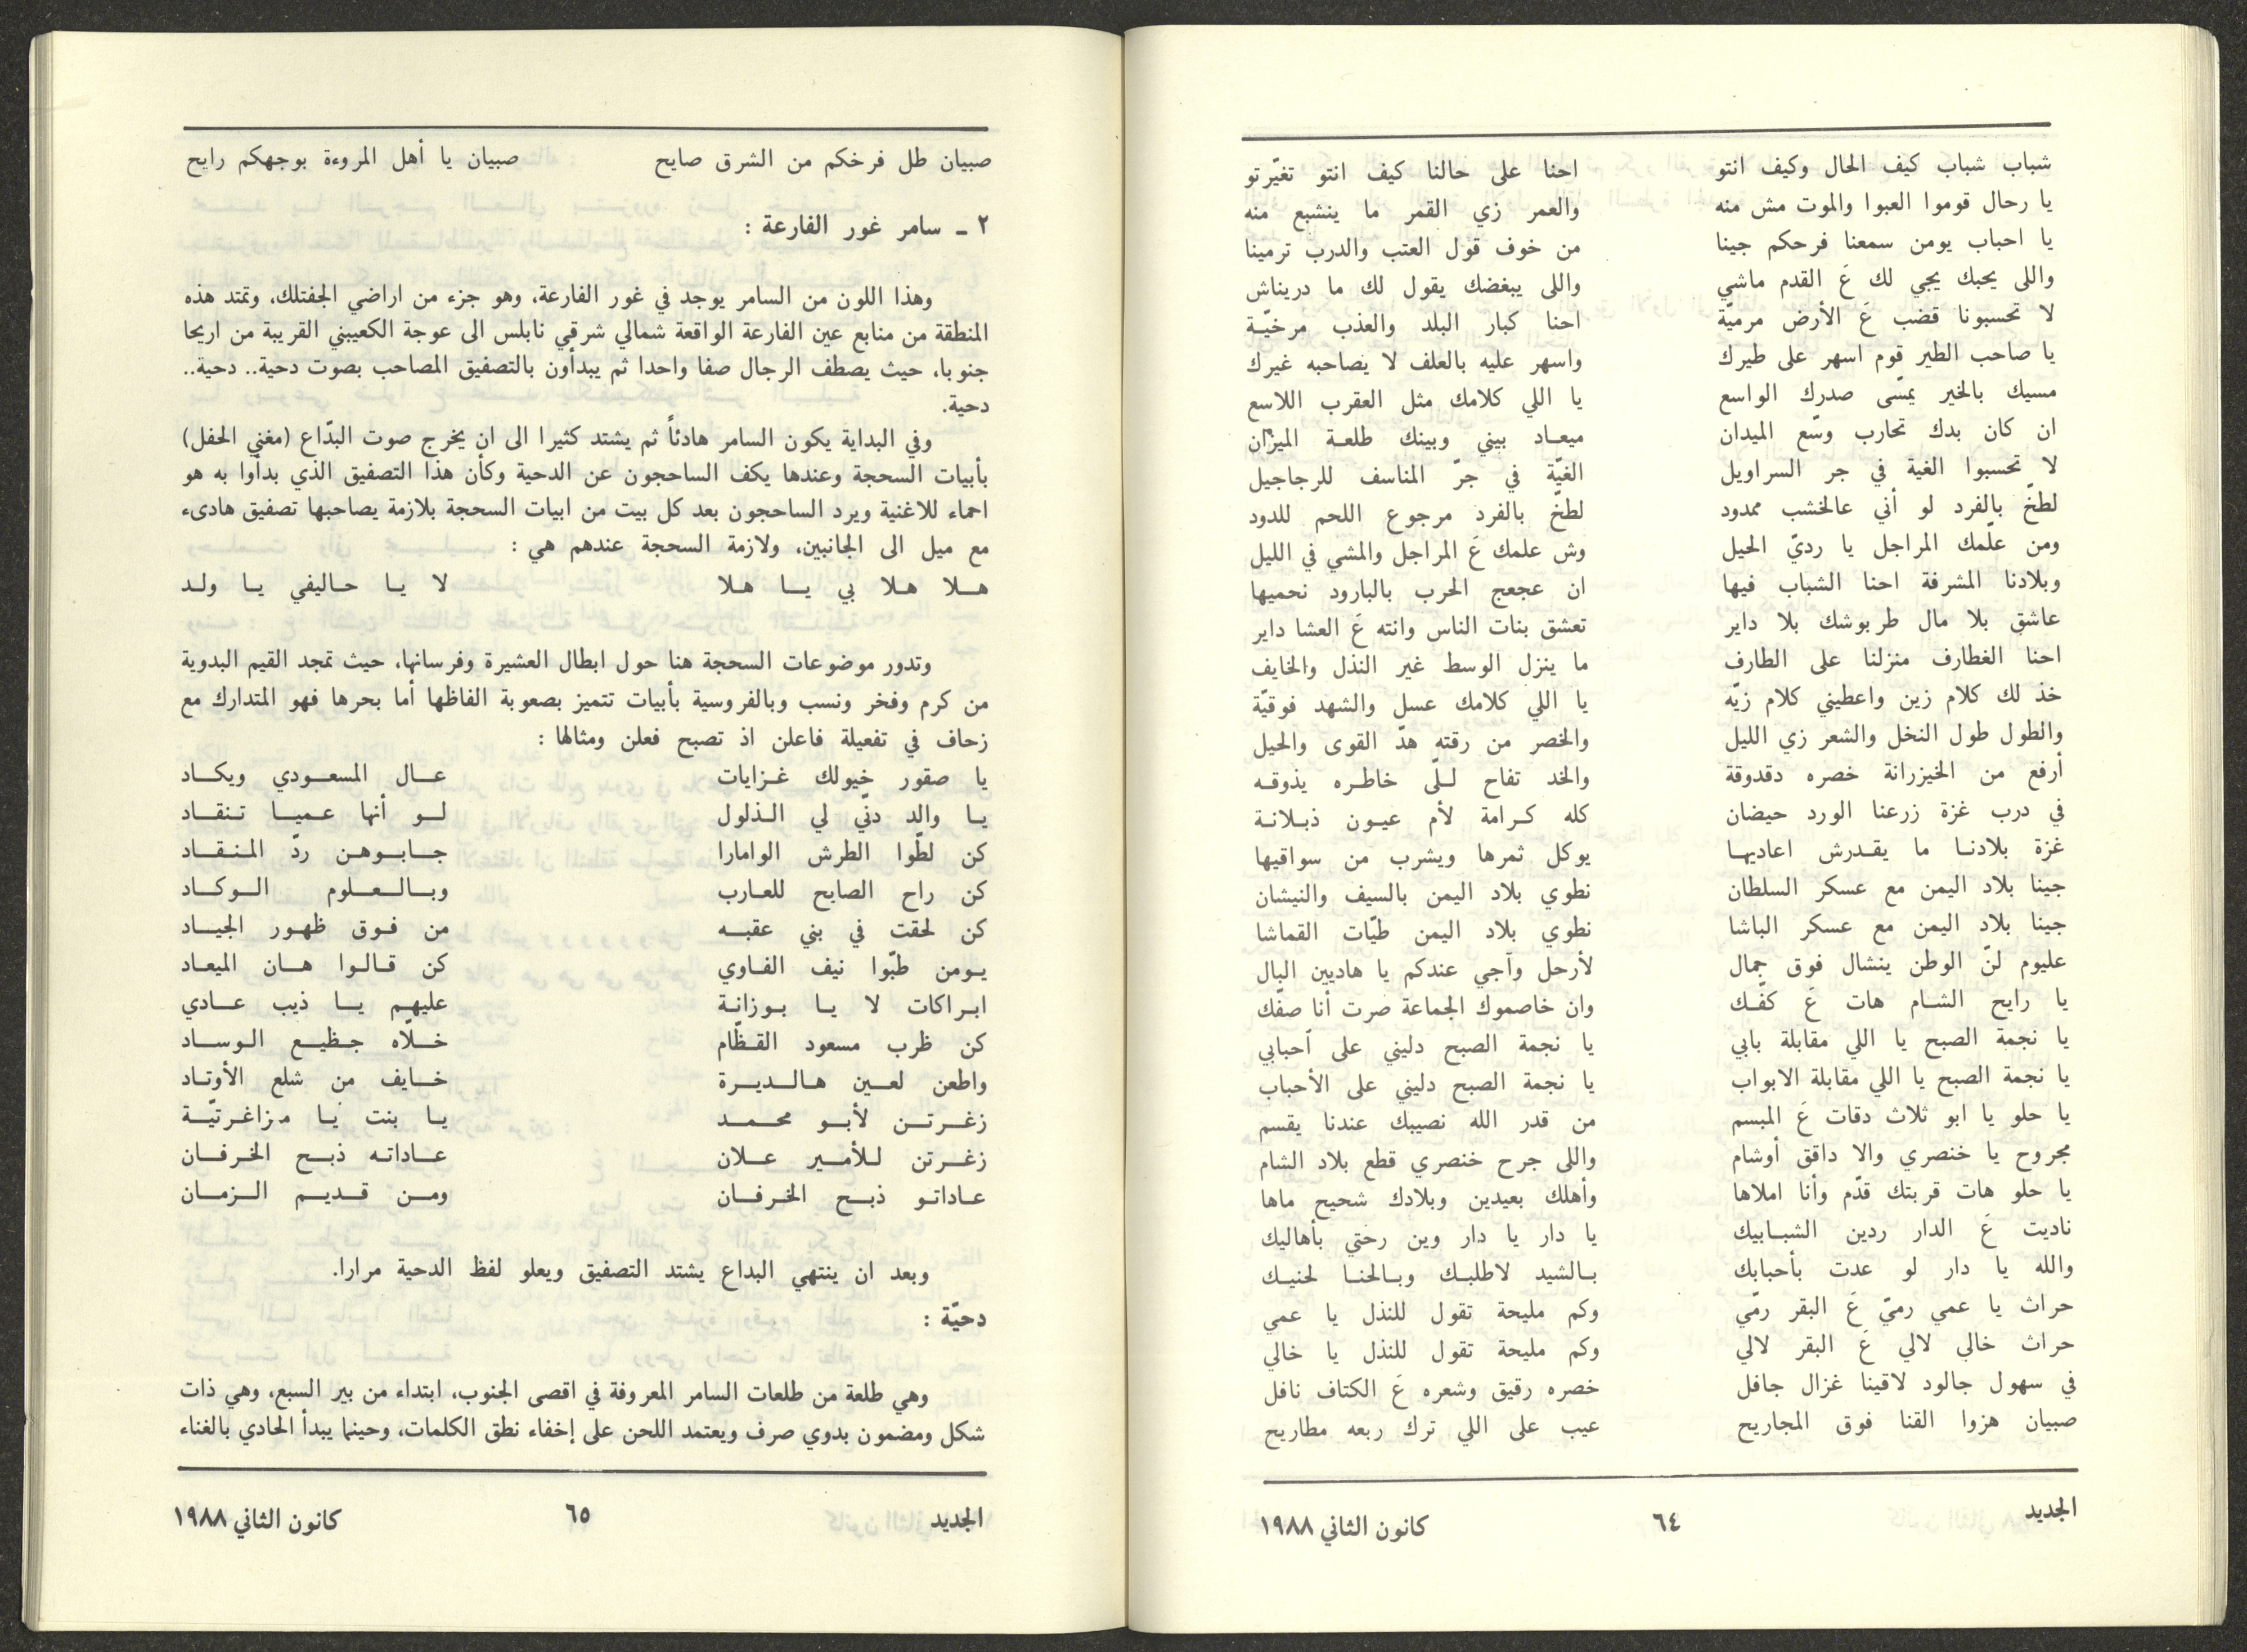 شباب شباب كيف الحال وكيف انتو احنا على حالنا كيف انتو تغيّرتو
يا رحال قوموا العبوا والموت مش منه والعمر زي القمر ما ينشبع منه
يا احباب يومن سمعنا فرحكم جينا من خوف قول العتب والدرب ترمينا
واللى يحبك يجي لك عَ القدم ماشي واللى يبغضك يقول لك ما دريناش
لا تحسبونا قضب عَ الأرض مرميّة احنا كبار البلد والعذب مرخيّة
يا صاحب الطير قوم اسهر على طيرك واسهر عليه بالعلف لا يصاحبه غيرك
مسيك بالخير يمسّى صدرك الواسع يا اللي كلامك مثل العقرب اللاسع
ان كان بدك تحارب وسّع الميدان ميعاد بيني وبينك طلعة الميزان
لا تحسبوا الغية في جر السراويل الغيّة في جرّ المناسف للرجاجيل
لطخّ بالفرد لو أني عالخشب ممدود لطخّ بالفرد مرجوع اللحم للدود
ومن علّمك المراجل يا رديّ الحيل وش علمك عَ المراجل والمشي في الليل
وبلادنا المشرفة احنا الشباب فيها ان عجعج الحرب بالبارود نحميها
عاشق بلا مال طربوشك بلا داير تعشق بنات الناس وانته عَ العشا داير
احنا الغطارف منزلنا على الطارف ما ينزل الوسط غير النذل والخايف
خذ لك كلام زين واعطيني كلام زيّه يا اللي كلامك عسل والشهد فوقيّة
والطول طول النخل والشعر زي الليل والخصر من رقته هدّ القوى والحيل
أرفع من الخيزرانة خصره دقدوقة والخد تفاح للّى خاطره يذوقه
في درب غزة زرعنا الورد حيضان كله كرامة لأم عيون ذبلانة
غزة بلادنا ما يقدرش اعاديها يوكل ثمرها ويشرب من سواقيها
جينا بلاد اليمن مع عسكر السلطان نطوي بلاد اليمن بالسيف والنيشان
جينا بلاد اليمن مع عسكر الباشا نطوي بلاد اليمن طيّات القماشا
عليوم لنّ الوطن ينشال فوق جمال لأرحل وآجي عندكم يا هاديين البال
يا رايح الشام هات عَ كفّك وان خاصموك الجماعة صرت أنا صفّك
يا نجمة الصبح يا اللي مقابلة بابي يا نجمة الصبح دليني على أحبابي
يا نجمة الصبح يا اللي مقابلة الابواب يا نجمة الصبح دليني على الأحباب
يا حلو يا ابو ثلاث دقات عَ المبسم من قدر الله نصيبك عندنا يقسم
مجروح يا خنصري والا داقق أوشام واللى جرح خنصري قطع بلاد الشام
يا حلو هات قربتك قدّم وأنا املاها وأهلك بعيدين وبلادك شحيح ماها
ناديت عَ الدار ردين الشبابيك يا دار يا دار وين رحتي بأهاليك
والله يا دار لو عدت بأحبابك بالشيد لاطلبك وبالحنا لحنيك
حراث يا عمي رميّ عَ البقر رمّي وكم مليحة تقول للنذل يا عمي
حراث خالي لالي عَ البقر لالي وكم مليحة تقول للنذل يا خالي
في سهول جالود لاقينا غزال جافل خصره رقيق وشعره عَ الكتاف نافل
صبيان هزوا القنا فوق المجاريح عيب على اللي ترك ربعه مطاريح
الجديد ٦٤ كانون الثاني ١٩٨٨
صبيان طل فرخكم من الشرق صايح صبيان يا أهل المروءة بوجهكم رايح
٢ ـ سامر غور الفارعة :
وهذا اللون من السامر يوجد في غور الفارعة، وهو جزء من اراضي الجفتلك، وتمتد هذه
المنطقة من منابع عين الفارعة الواقعة شمالي شرقي نابلس الى عوجة الكعيبني القريبة من اريحا
جنوبا، حيث يصطف الرجال صفا واحدا ثم يبدأون بالتصفيق المصاحب بصوت دحية.. دحية..
دحية.
وفي البداية يكون السامر هادئاً ثم يشتد كثيرا الى ان يخرج صوت البدّاع (مغني الحفل)
بأبيات السحجة وعندها يكف الساحجون عن الدحية وكأن هذا التصفيق الذي بدأوا به هو
احماء للاغنية ويرد الساحجون بعد كل بيت من ابيات السحجة بلازمة يصاحبها تصفيق هادىء
مع ميل الى الجانبين، ولازمة السحجة عندهم هي :
هلا هلا بي يا هلا لا يا حاليفي يا ولد
وتدور موضوعات السحجة هنا حول ابطال العشيرة وفرسانها، حيث تمجد القيم البدوية
من كرم وفخر ونسب وبالفروسية بأبيات تتميز بصعوبة الفاظها أما بحرها فهو المتدارك مع
زحاف في تفعيلة فاعلن اذ تصبح فعلن ومثالها :
يا صقور خيولك غزايات عال المسعودي ويكاد
يا والد دنّي لي الذلول لو أنها عميا تنقاد
كن لطّوا الطرش الوامارا جابوهن ردّ المنقاد
كن راح الصايح للعارب وبالعلوم الوكاد
كن لحقت في بني عقبه من فوق ظهور الجياد
يومن طبّوا نيف الفاوي كن قالوا هان الميعاد
ابراكات لا يا بوزانة عليهم يا ذيب عادي
كن ظرب مسعود القظّام خلّاه جظيع الوساد
واطعن لعين هالديرة خايف من شلع الأوتاد
زغرتن لأبو محمد يا بنت يا مزاغرتيّة
زغرتن للأمير علان عاداته ذبح الخرفان
عاداتو ذبح الخرفان ومن قديم الزمان
وبعد ان ينتهي البداع يشتد التصفيق ويعلو لفظ الدحية مرارا.
دحيّة :
وهي طلعة من طلعات السامر المعروفة في اقصى الجنوب، ابتداء من بير السبع، وهي ذات
شكل ومضمون بدوي صرف ويعتمد اللحن على إخفاء نطق الكلمات، وحينما يبدأ الحادي بالغناء
الجديد ٦٥ كانون الثاني ١٩٨٨